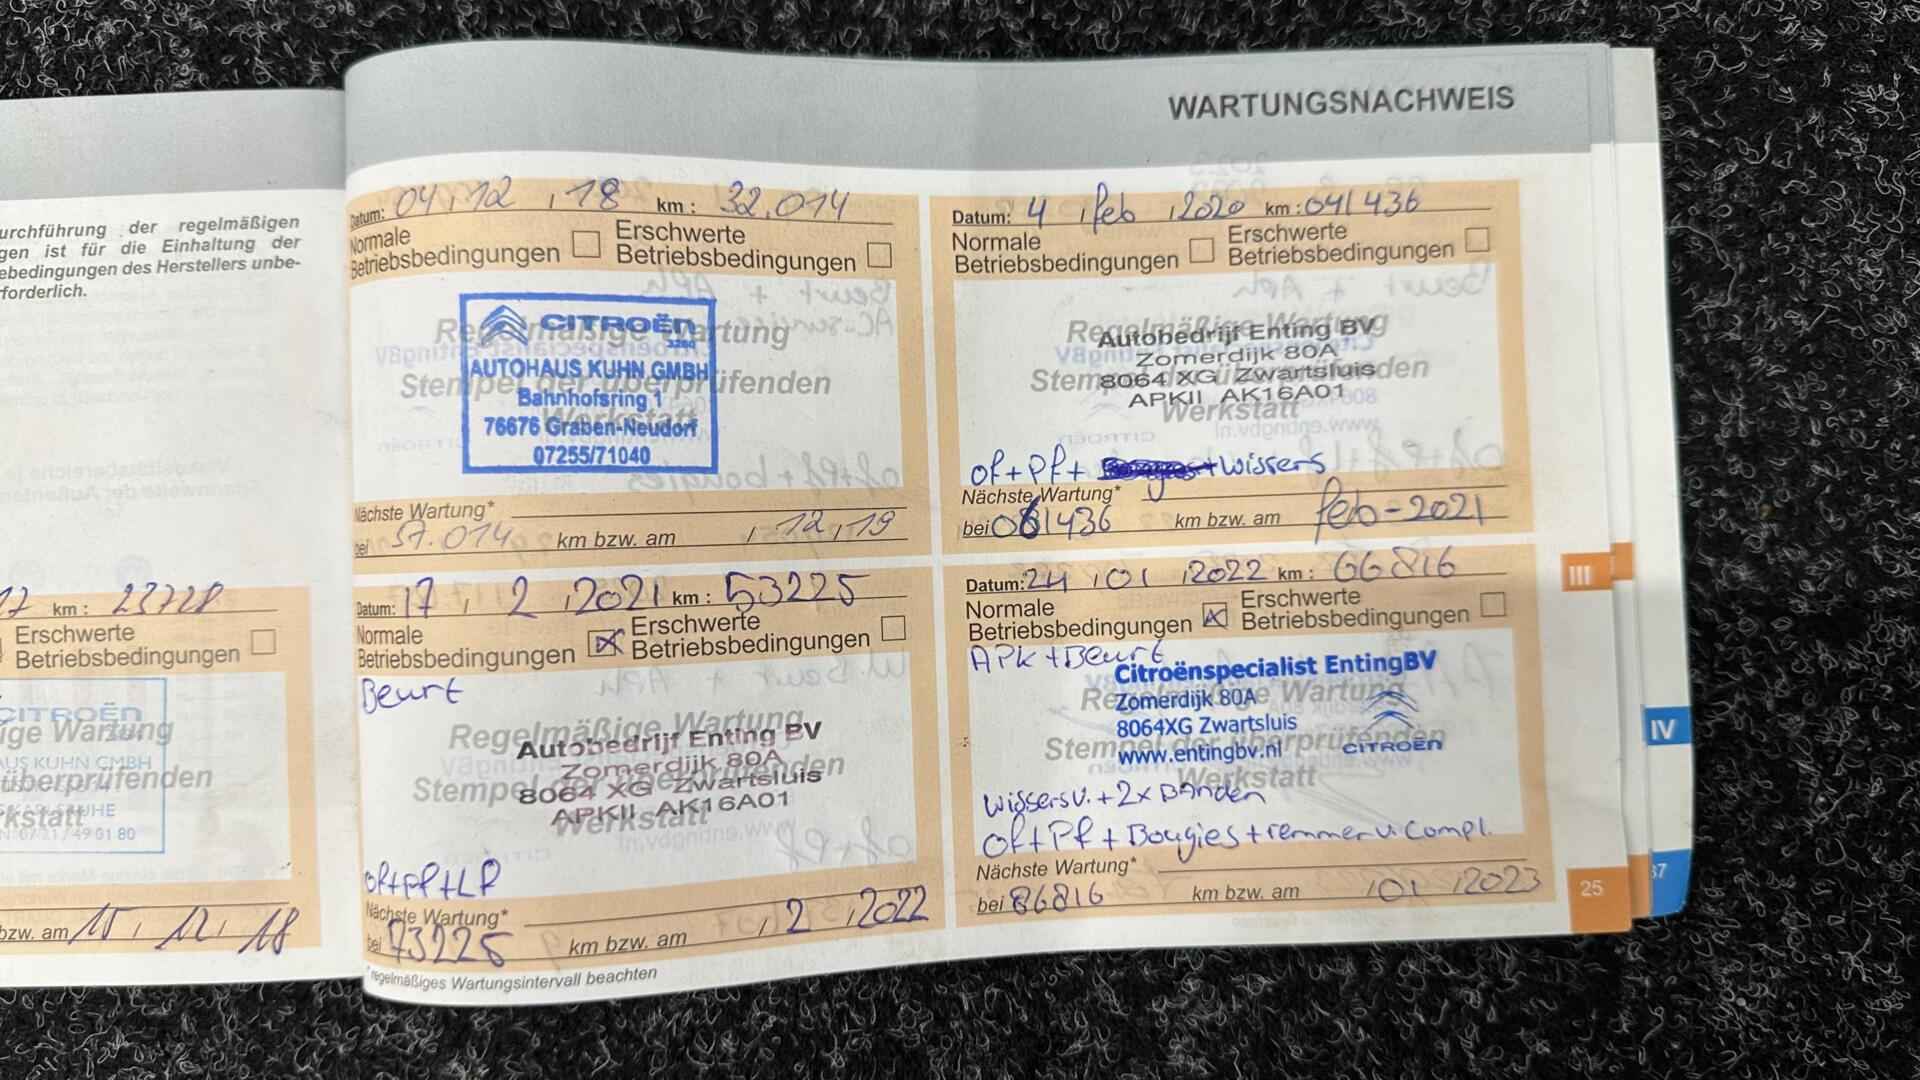 WARTUNGSNACHWEIS
urchführung der regelmäßigen
gen ist für die Einhaltung der
ebedingungen des Herstellers unbe-
rforderlich.
17 km : 23728
Erschwerte
Betriebsbedingungen
CITROËN
ige Wartung
AUS KUHN GMBH
überprüfenden
KARLSRUHE
rkstatt
07 21 / 49 01 80
bzw. am 15, 12, 18
Datum: 04, 12 , 18 km : 32.014
Normale Betriebsbedingungen
Erschwerte Betriebsbedingungen
Regelmäßige Wartung
Stempel der überprüfenden
Werkstatt
CITROËN
3260
AUTOHAUS KUHN GMBH
Bahnhofsring 1
76676 Graben-Neudorf
07255/71040
Nächste Wartung*
bei 57.014 km bzw. am , 12 , 19
Datum: 4 , feb , 2020 km : 041436
Normale Betriebsbedingungen
Erschwerte Betriebsbedingungen
Regelmäßige Wartung
Stempel der überprüfenden
Werkstatt
Autobedrijf Enting BV
Zomerdijk 80A
8064 XG Zwartsluis
APKII AK16A01
of + Pf + + wissers
Nächste Wartung*
bei 061436 km bzw. am feb - 2021
Datum: 17 , 2 , 2021 km : 53225
Normale Betriebsbedingungen
Erschwerte Betriebsbedingungen
Beurt
Regelmäßige Wartung
Stempel der überprüfenden
Werkstatt
Autobedrijf Enting BV
Zomerdijk 80A
8064 XG Zwartsluis
APKII AK16A01
of+pf+LF
Nächste Wartung*
bei 73225 km bzw. am , 2 , 2022
* regelmäßiges Wartungsintervall beachten
Datum: 24 , 01 , 2022 km : 66816
Normale Betriebsbedingungen
Erschwerte Betriebsbedingungen
APK + Beurt
Regelmäßige Wartung
Stempel der überprüfenden
Werkstatt
Citroënspecialist EntingBV
Zomerdijk 80A
8064XG Zwartsluis
www.entingbv.nl CITROËN
wissers v. + 2x Banden
of + Pf + Bougies + remmen v. compl.
Nächste Wartung*
bei 86816 km bzw. am , 01 , 2023
III
IV
25
37